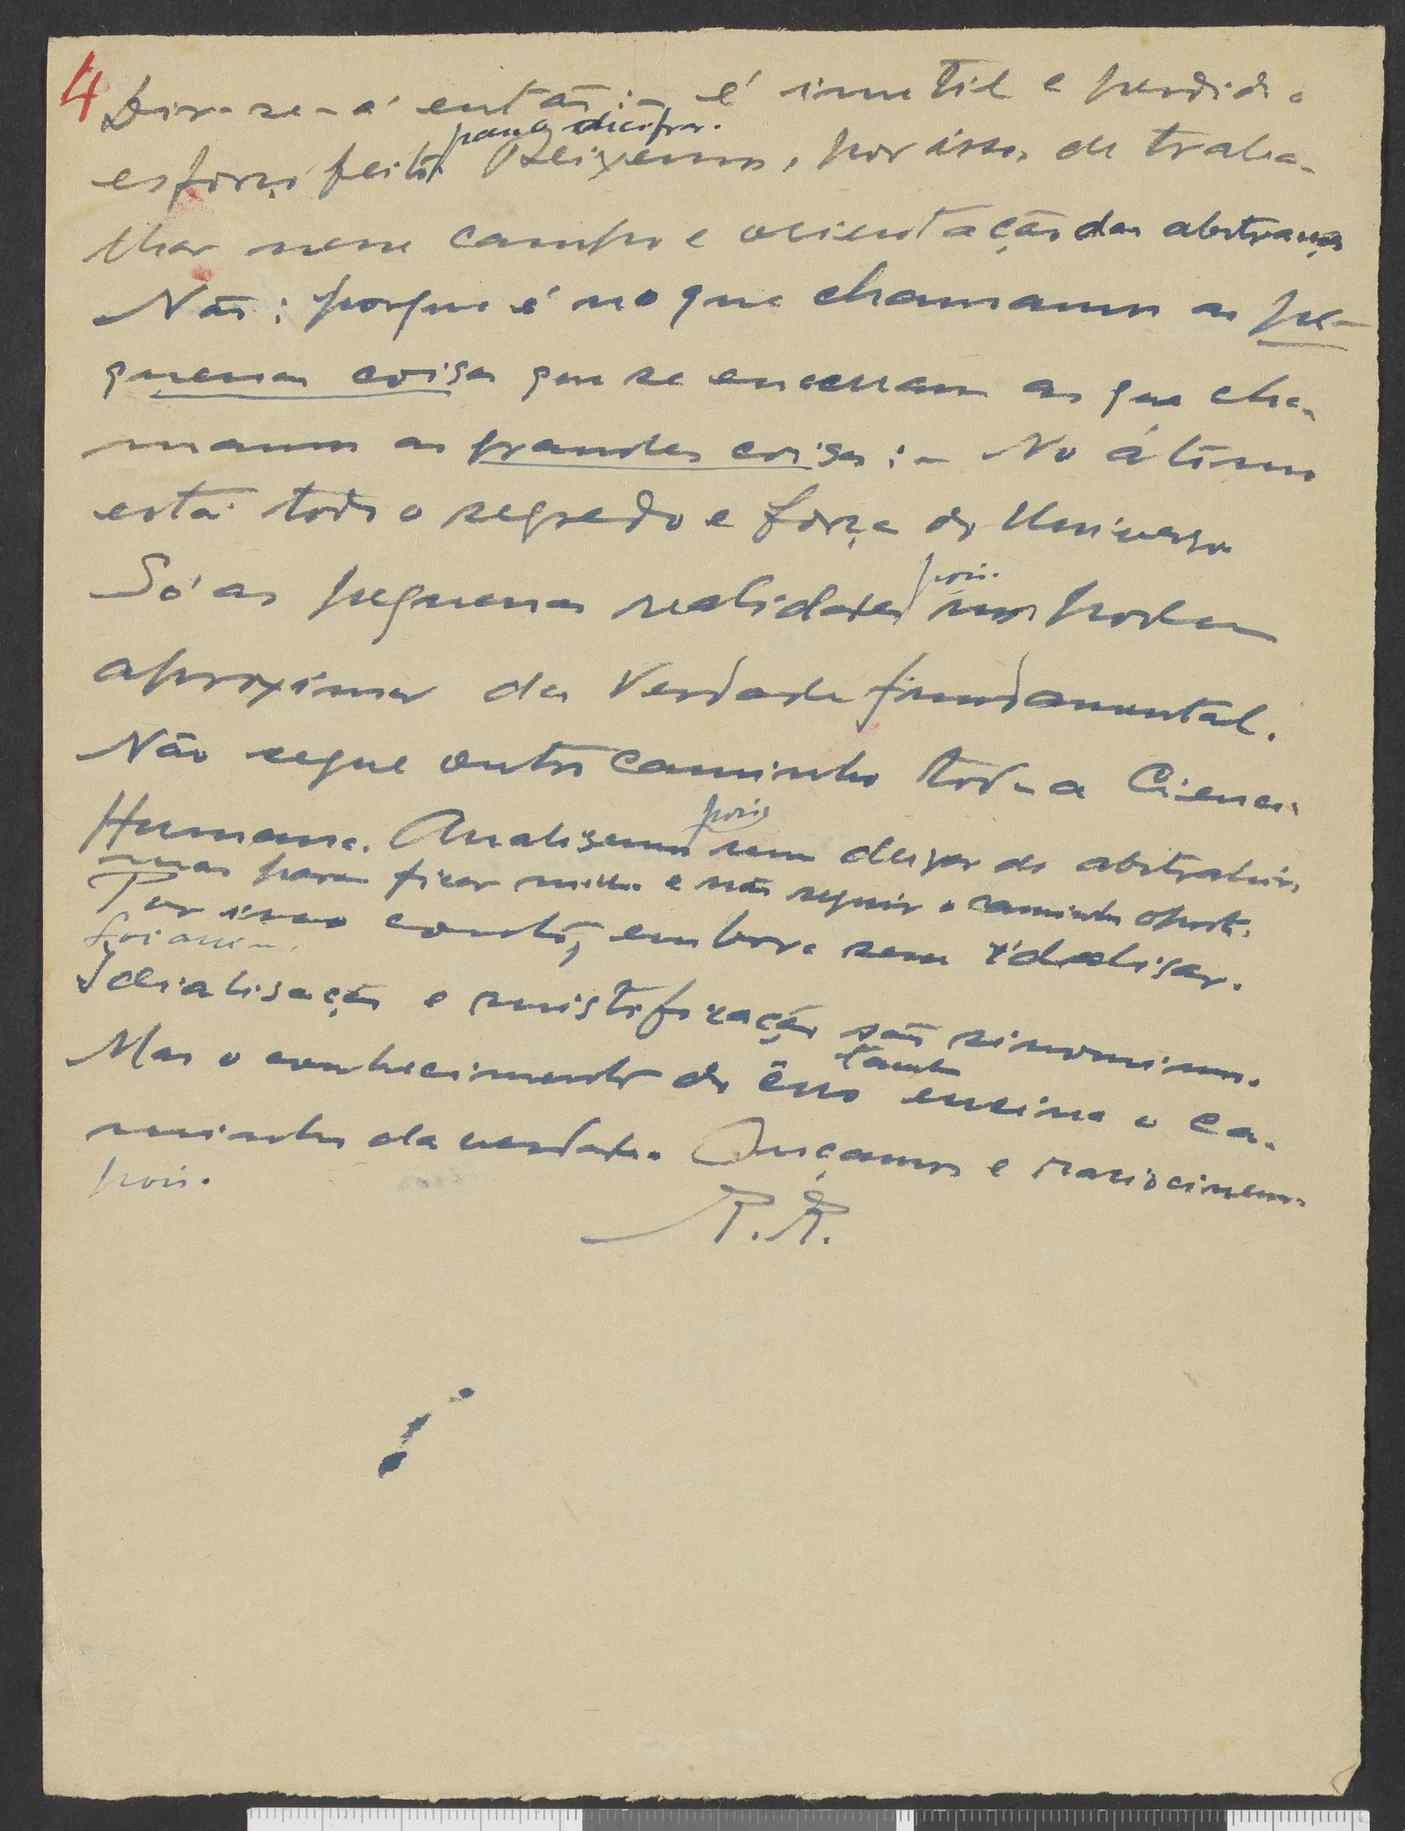 4
Dir-se-á então:- é inutil e perdido
para decifrar.
esforço feito. Deixemos, por isso, de traba-
lhar nesse campo e orientação das abstrações
Não; porque é no que chamamos as pe-
quenas coisas que se encerram as que cha-
mamos as grandes coisas:- No átimo
está todo o segredo e força do Universo
pois.
Só as pequenas realidades nos podem
aproximar da Verdade fundamental.
Não segue outro caminho toda a Ciencia
pois
Humana. Analisemos sem deixar de abstrahir,
mas para ficar e não seguir o caminho
Por isso conto, embora sem idealisar.
Foi assim.
Idialisação e mistificação são sinonimos.
tamb
Mas o conhecimento do êrro ensina o ca-
minho da verdade. Ouçamos e raciocinemos
pois.
R.R.